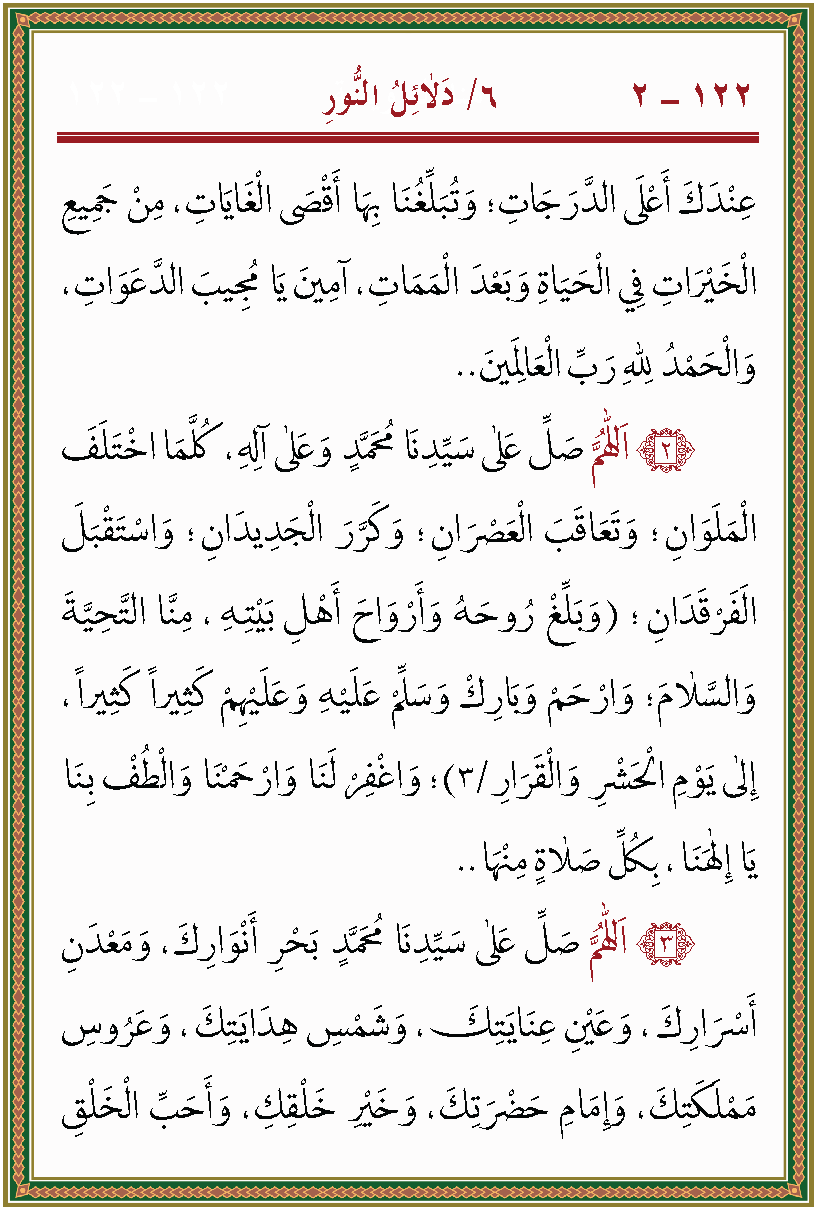 ١٢٢ - ٢ ٦/ دَلَائِلُ النُّورِ ١٢٢ ١٢٢
عِنْدَكَ أَعْلَى الدَّرَجَاتِ؛ وَتُبَلِّغُنَا بِهَا أَقْصَى الْغَايَاتِ، مِنْ جَمِيعِ
الْخَيْرَاتِ فِي الْحَيَاةِ وَبَعْدَ الْمَمَاتِ، آمِينَ يَا مُجِيبَ الدَّعَوَاتِ،
وَالْحَمْدُ لِلهِ رَبِّ الْعَالَمِينَ..
﴿٢﴾ اَللّٰهُمَّ صَلِّ عَلٰى سَيِّدِنَا مُحَمَّدٍ وَعَلٰى آلِهِ، كُلَّمَا اخْتَلَفَ
الْمَلَوَانِ؛ وَتَعَاقَبَ الْعَصْرَانِ؛ وَكَرَّرَ الْجَدِيدَانِ؛ وَاسْتَقْبَلَ
الْفَرْقَدَانِ؛ (وَبَلِّغْ رُوحَهُ وَأَرْوَاحَ أَهْلِ بَيْتِهِ، مِنَّا التَّحِيَّةَ
وَالسَّلَامَ؛ وَارْحَمْ وَبَارِكْ وَسَلِّمْ عَلَيْهِ وَعَلَيْهِمْ كَثِيراً كَثِيراً،
إِلٰى يَوْمِ الْحَشْرِ وَالْقَرَارِ/٣)؛ وَاغْفِرْ لَنَا وَارْحَمْنَا وَالْطُفْ بِنَا
يَا إِلٰهَنَا، بِكُلِّ صَلَاةٍ مِنْهَا..
﴿٣﴾ اَللّٰهُمَّ صَلِّ عَلٰى سَيِّدِنَا مُحَمَّدٍ بَحْرِ أَنْوَارِكَ، وَمَعْدَنِ
أَسْرَارِكَ، وَعَيْنِ عِنَايَتِكَ، وَشَمْسِ هِدَايَتِكَ، وَعَرُوسِ
مَمْلَكَتِكَ، وَإِمَامِ حَضْرَتِكَ، وَخَيْرِ خَلْقِكِ، وَأَحَبِّ الْخَلْقِ